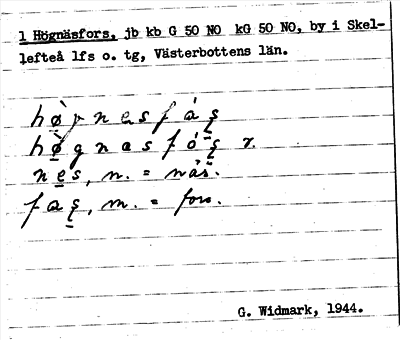 1 Högnäsfors, jb kb G 50 NO kG 50 NO, by i Skel-
lefteå lfs o. tg, Västerbottens län.
hø̀gnesfás̨
hø̀gnasfós̨ r.
nes, n. = näs.
fas̨, m. = fors.
G. Widmark, 1944.